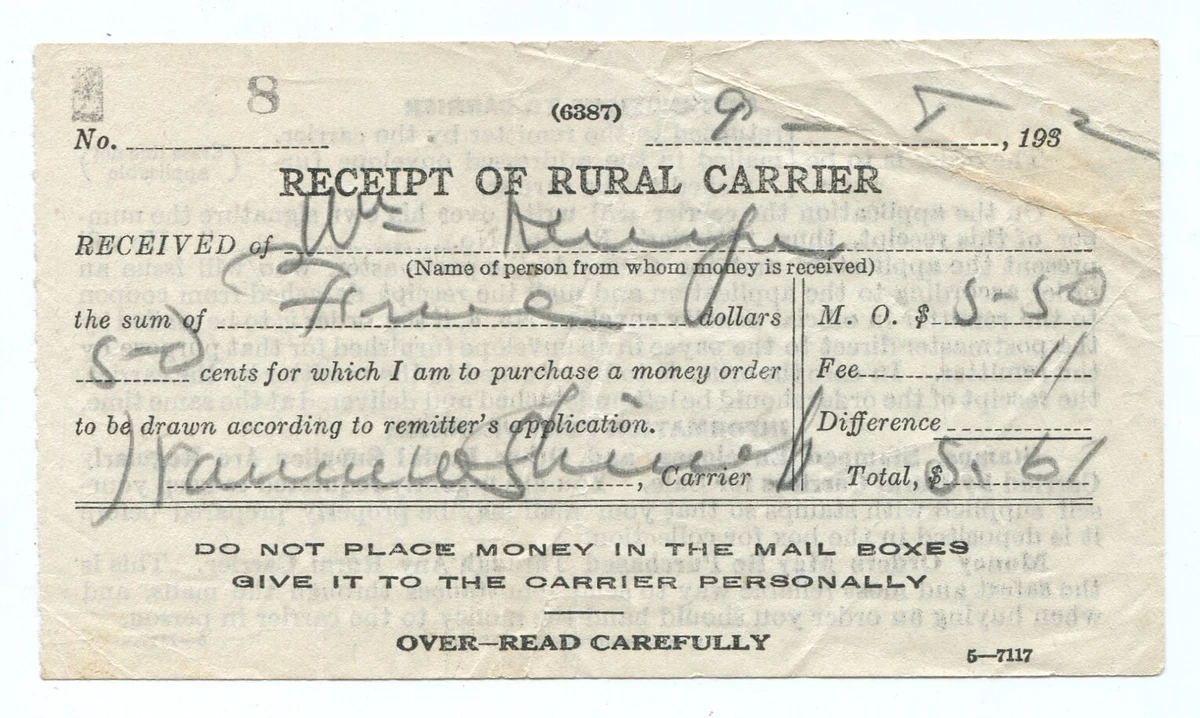 8
(6387)
No. 9 - 1, 1932
RECEIPT OF RURAL CARRIER
RECEIVED of Wm
(Name of person from whom money is received)
the sum of Five dollars M. O. $ 5.50
50 cents for which I am to purchase a money order Fee 11
to be drawn according to remitter's application. Difference
, Carrier Total, $ 5.61
DO NOT PLACE MONEY IN THE MAIL BOXES
GIVE IT TO THE CARRIER PERSONALLY
OVER—READ CAREFULLY
5—7117